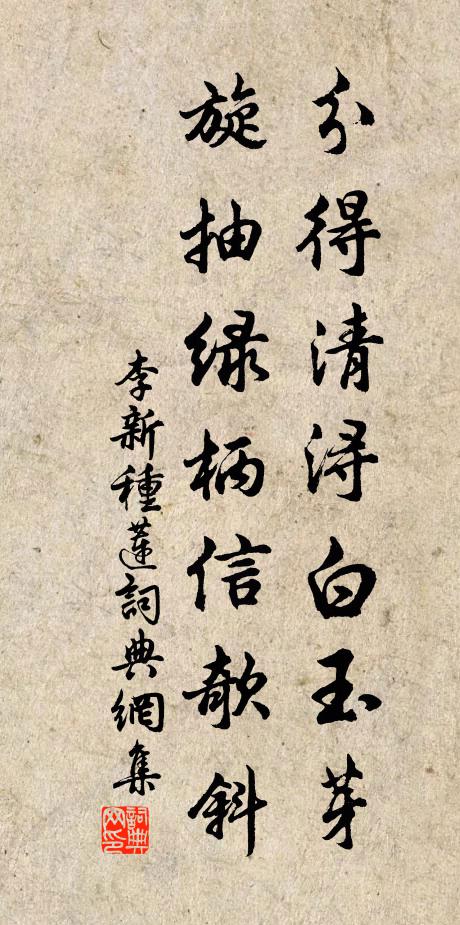 分得清浔白玉芽
旋抽绿柄信欹斜
李新種蓮詞典網集
詞典
网印